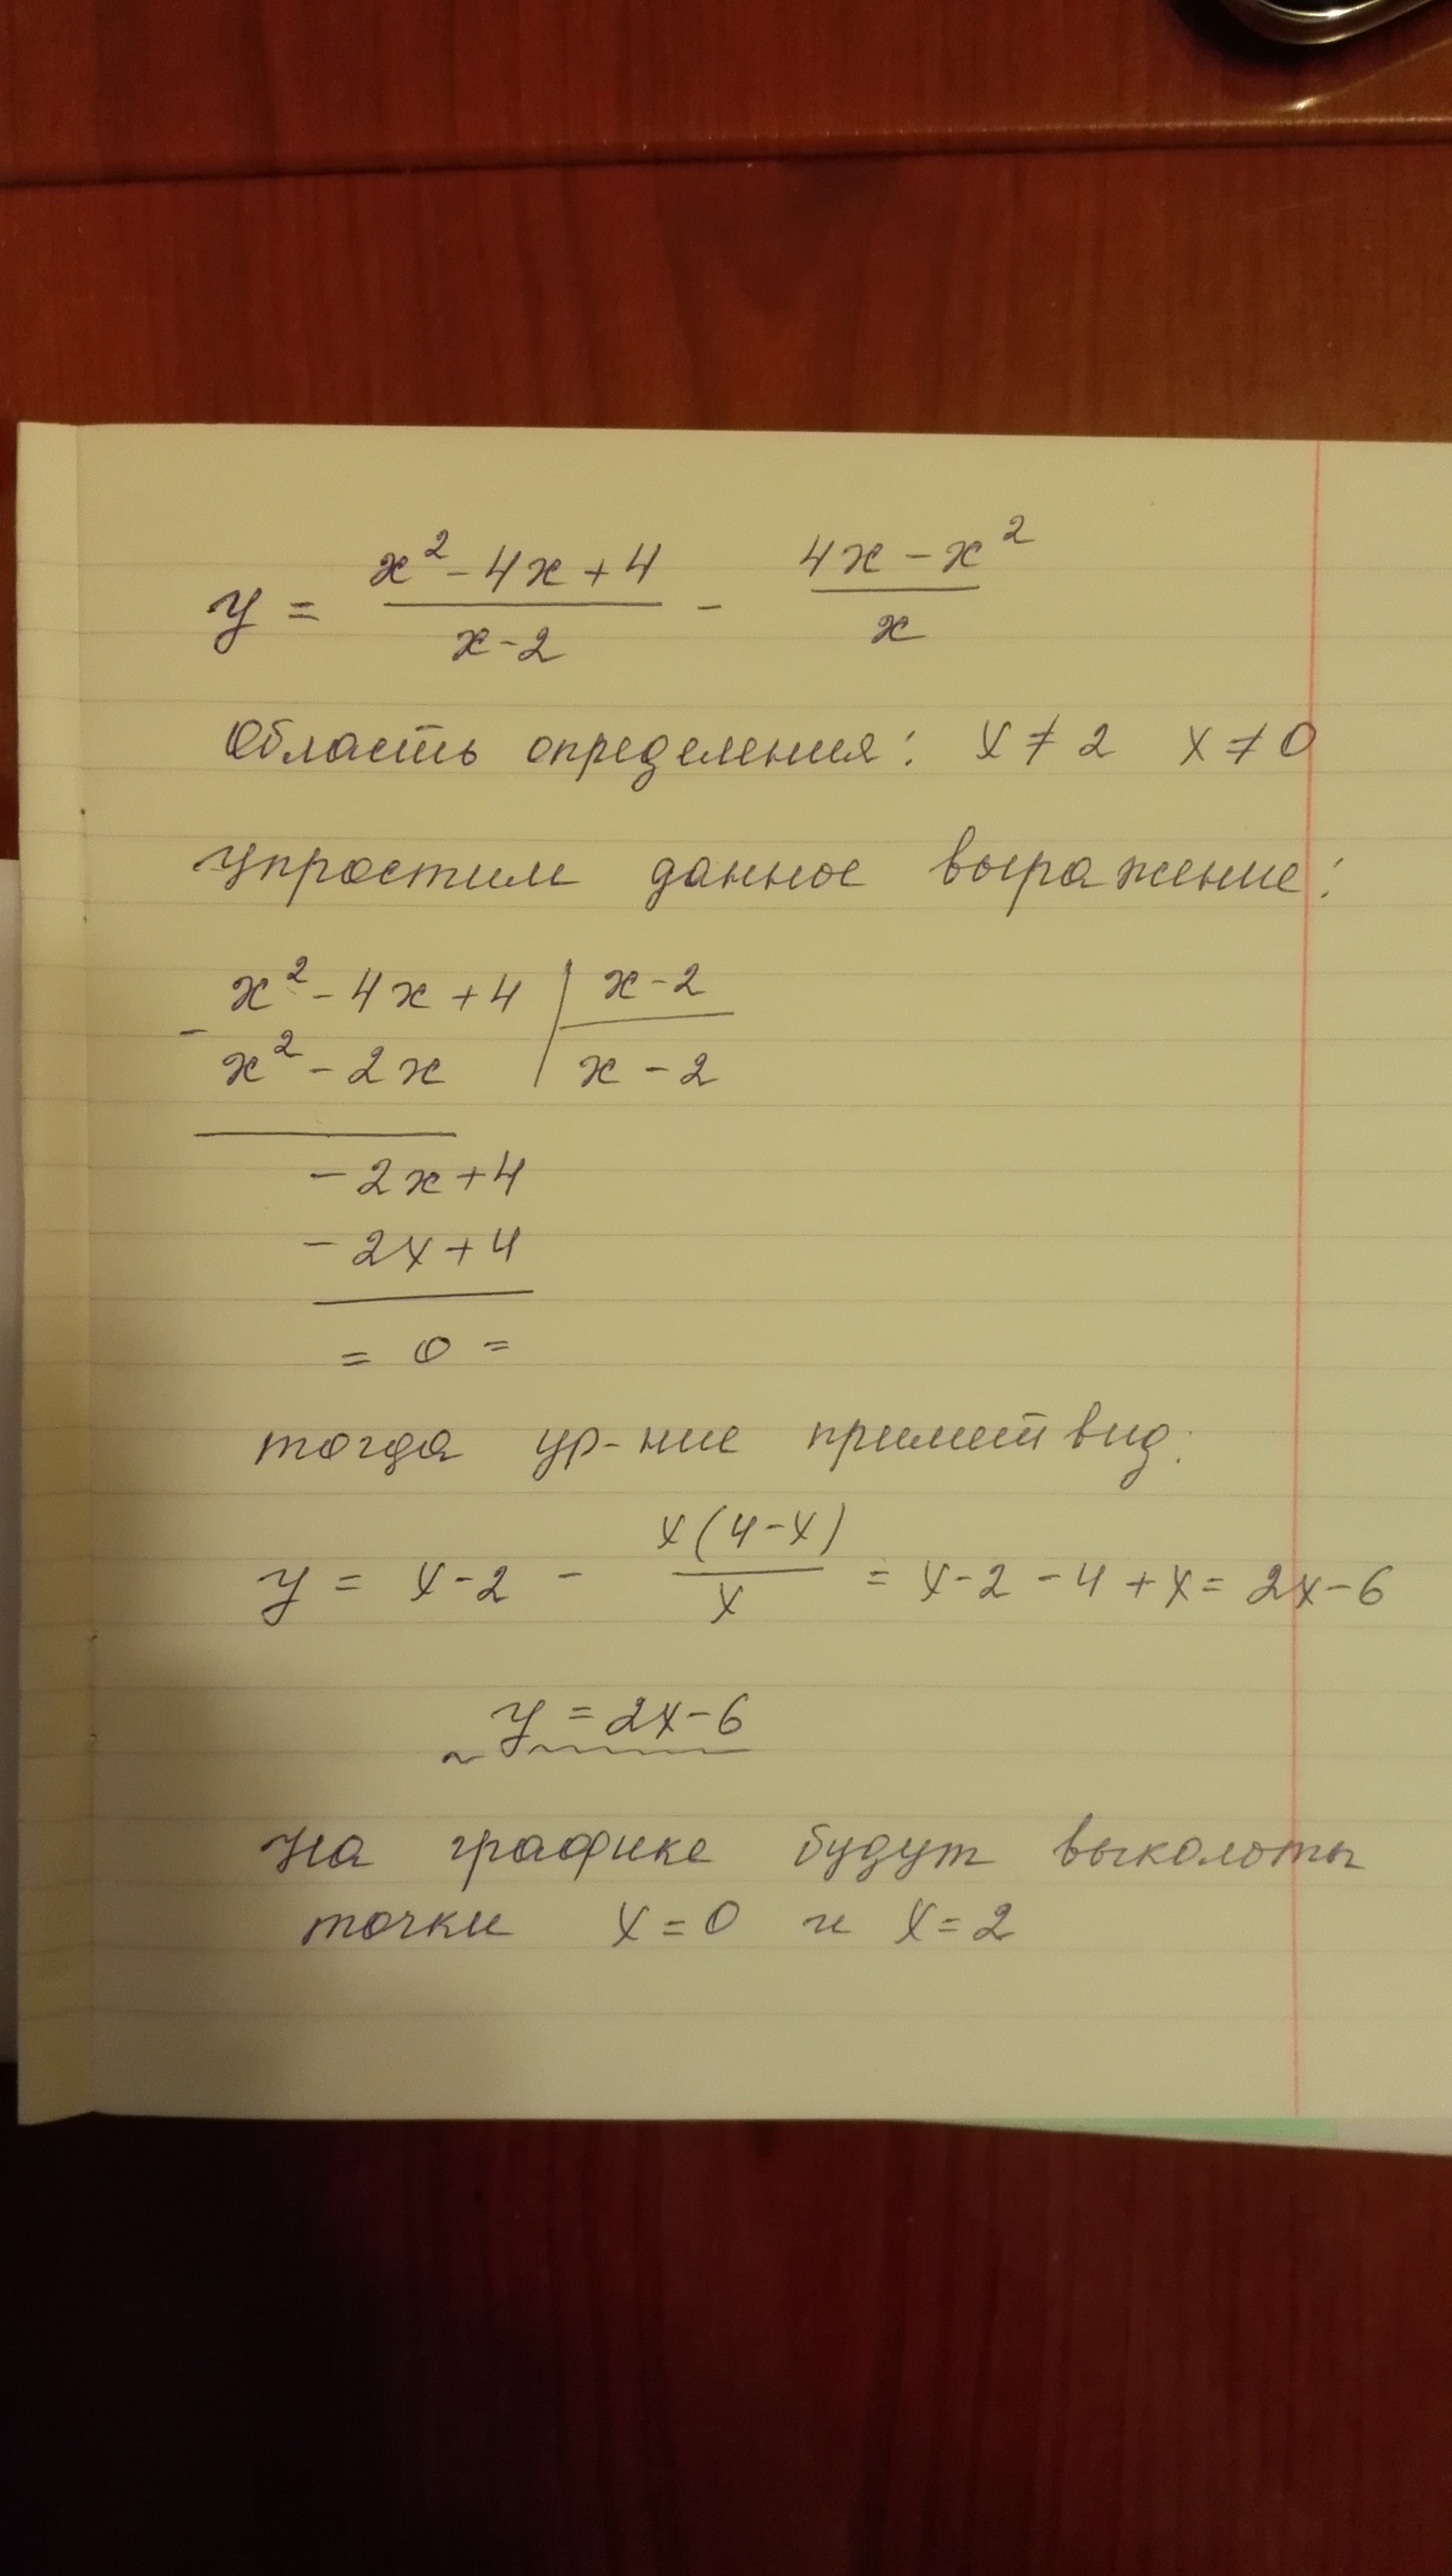 y = (x² - 4x + 4)/(x - 2) - (4x - x²)/x
Область определения: x ≠ 2 x ≠ 0
Упростим данное выражение:
x² - 4x + 4 | x - 2
- x² - 2x | x - 2
- 2x + 4
- 2x + 4
= 0 =
тогда ур-ние примет вид:
y = x - 2 - x(4 - x)/x = x - 2 - 4 + x = 2x - 6
y = 2x - 6
На графике будут выколоты
точки x = 0 и x = 2